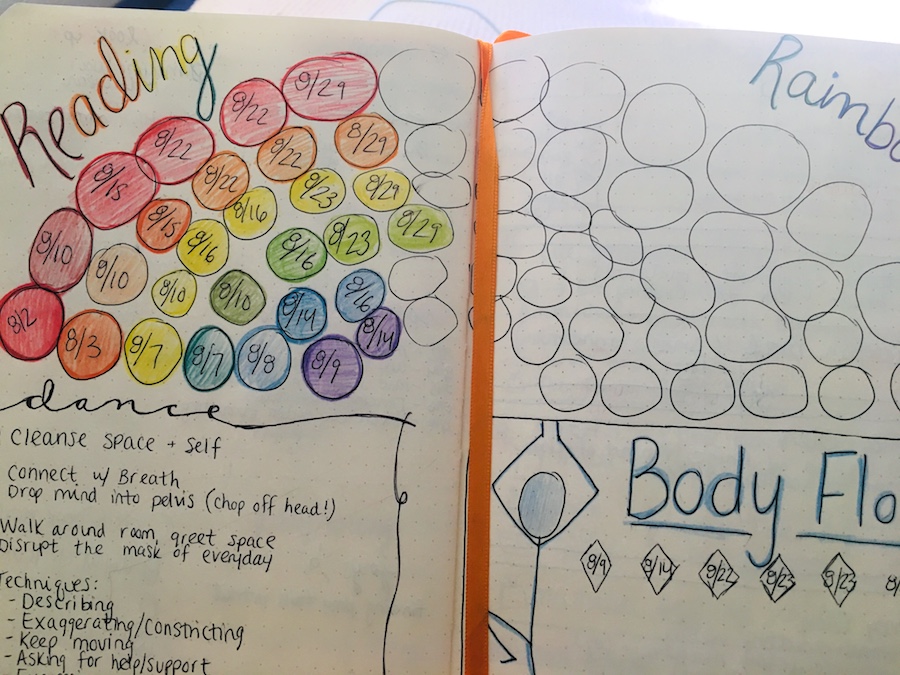 Reading
8/2 8/10 8/15 8/22 8/22 8/29
8/3 8/10 8/15 8/22 8/22 8/29
8/7 8/10 8/16 8/16 8/23 8/29
8/7 8/10 8/16 8/23 8/29
8/8 8/14 8/16
8/9 8/14
dance
Cleanse space + self
Connect w/ Breath
Drop mind into pelvis (chop off head!)
Walk around room, greet space
Disrupt the mask of everyday
Techniques:
- Describing
- Exaggerating/constricting
- Keep moving
- Asking for help/support
Rainbo
Body Flo
8/9 8/14 8/22 8/23 8/23 8/